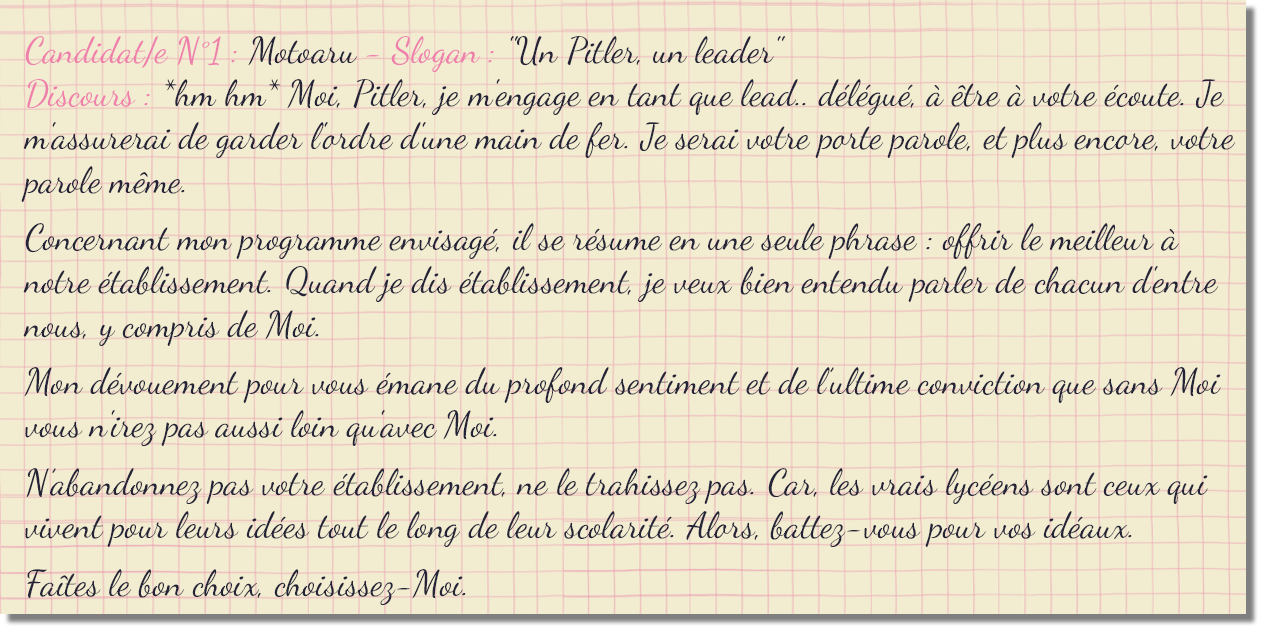 Candidat/e N°1 : Motoaru - Slogan : "Un Pitler, un leader"
Discours : *hm hm* Moi, Pitler, je m'engage en tant que lead.. délégué, à être à votre écoute. Je
m'assurerai de garder l'ordre d'une main de fer. Je serai votre porte parole, et plus encore, votre
parole même.
Concernant mon programme envisagé, il se résume en une seule phrase : offrir le meilleur à
notre établissement. Quand je dis établissement, je veux bien entendu parler de chacun d'entre
nous, y compris de Moi.
Mon dévouement pour vous émane du profond sentiment et de l'ultime conviction que sans Moi
vous n'irez pas aussi loin qu'avec Moi.
N'abandonnez pas votre établissement, ne le trahissez pas. Car, les vrais lycéens sont ceux qui
vivent pour leurs idées tout le long de leur scolarité. Alors, battez-vous pour vos idéaux.
Faîtes le bon choix, choisissez-Moi.